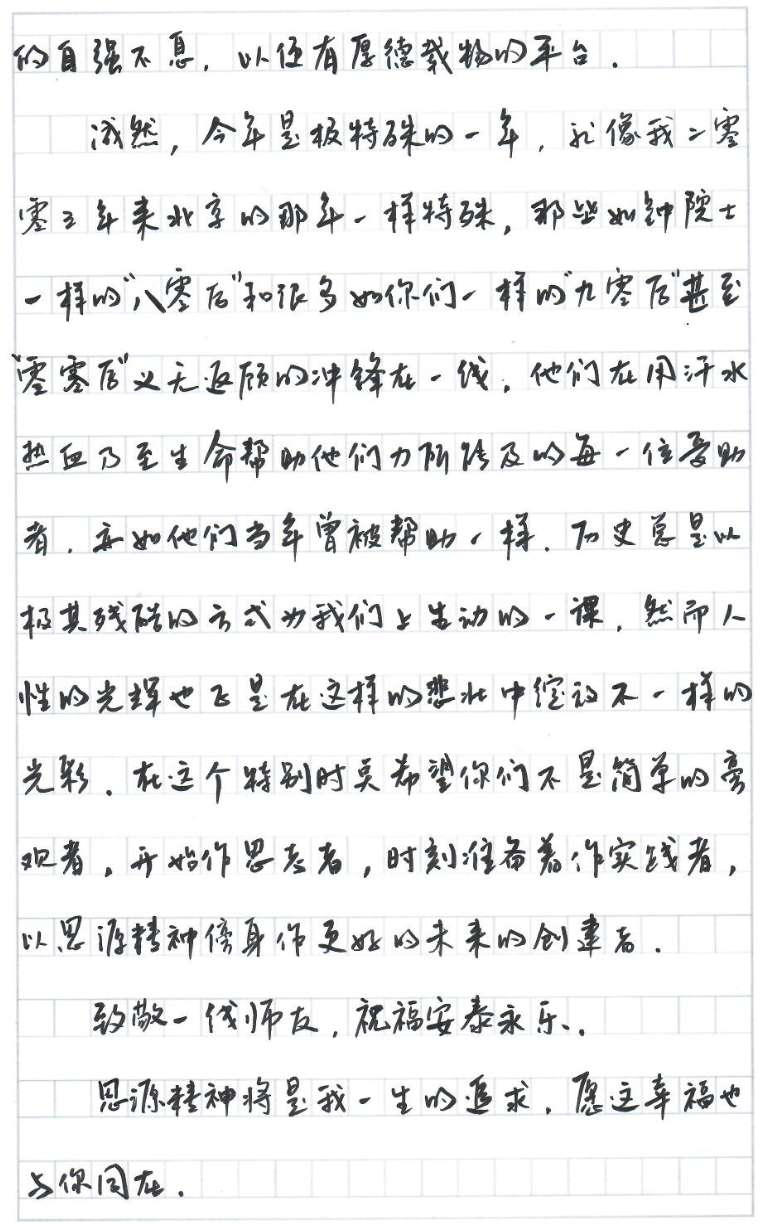 的自强不息，以便有厚德载物的平台.
诚然，今年是极特殊的一年，就像我二零
零三年来北京的那年一样特殊，那些如钟院士
一样的"八零后"和很多如你们一样的"九零后"甚至
"零零后"义无返顾的冲锋在一线，他们在用汗水
热血乃至生命帮助他们力所能及的每一位受助
者，亦如他们当年曾被帮助一样.历史总是以
极其残酷的方式为我们上生动的一课，然而人
性的光辉也正是在这样的悲壮中绽放不一样的
光彩.在这个特别时点希望你们不是简单的旁
观者，开始作思志者，时刻准备着作实践者，
以思源精神傍身作更好的未来的创建者.
致敬一线师友，祝福安泰永乐.
思源精神将是我一生的追求，愿这幸福也
与你同在.